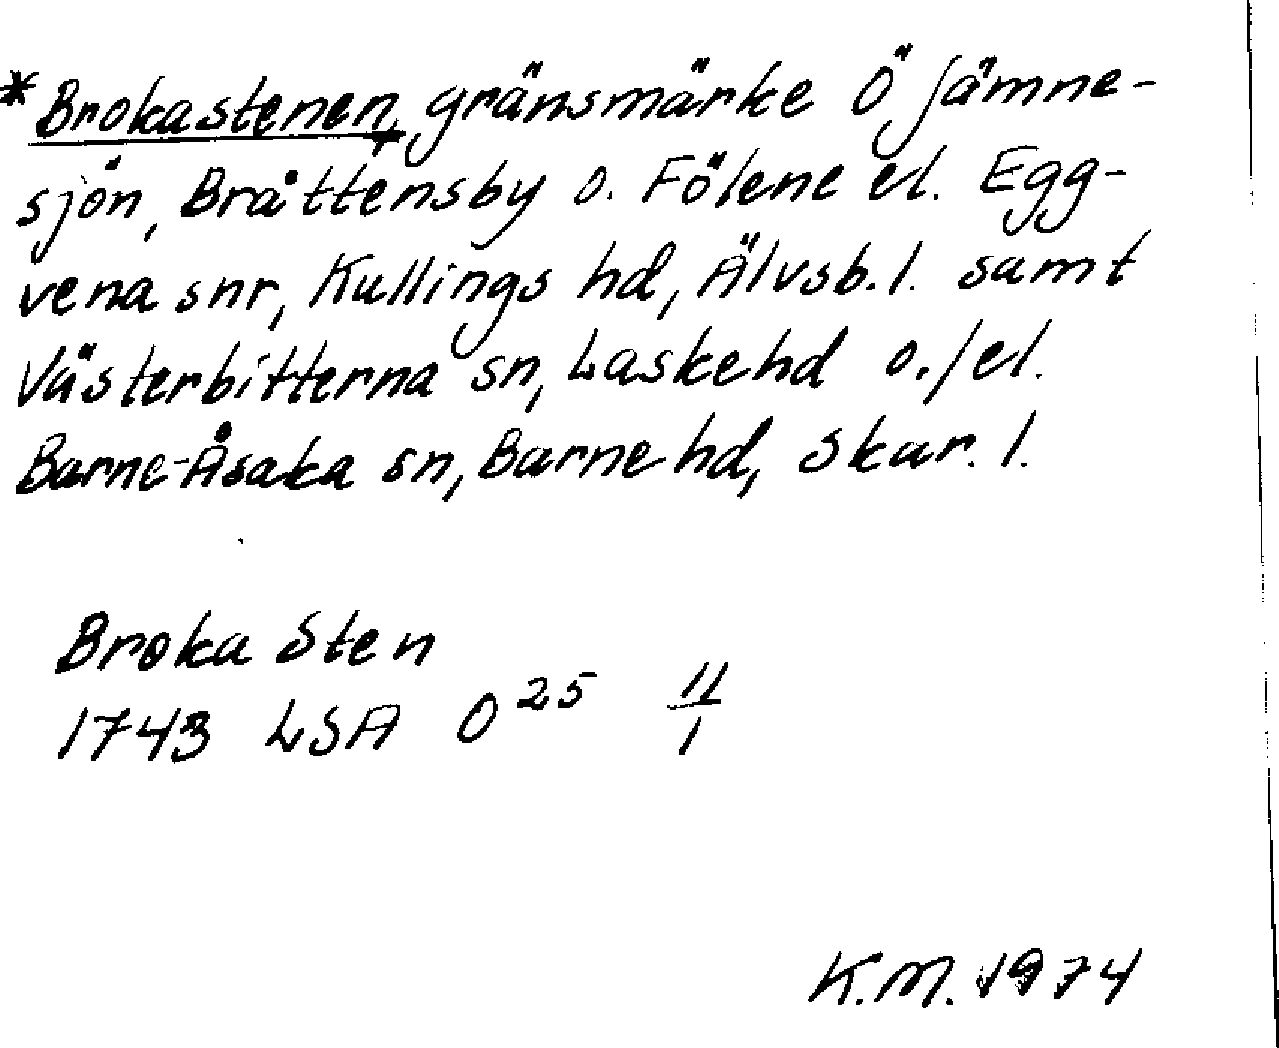 *Brokastenen, gränsmärke Ö Jämne-
sjön, Bråttensby o. Fölene el. Egg-
vena snr, Kullings hd, Älvsb. l. samt
Västerbitterna sn, Laske hd o./el.
Barne-Åsaka sn, Barne hd, Skar. l.
Broka Sten
1743 LSA O 25 11/1
K.M. 1974